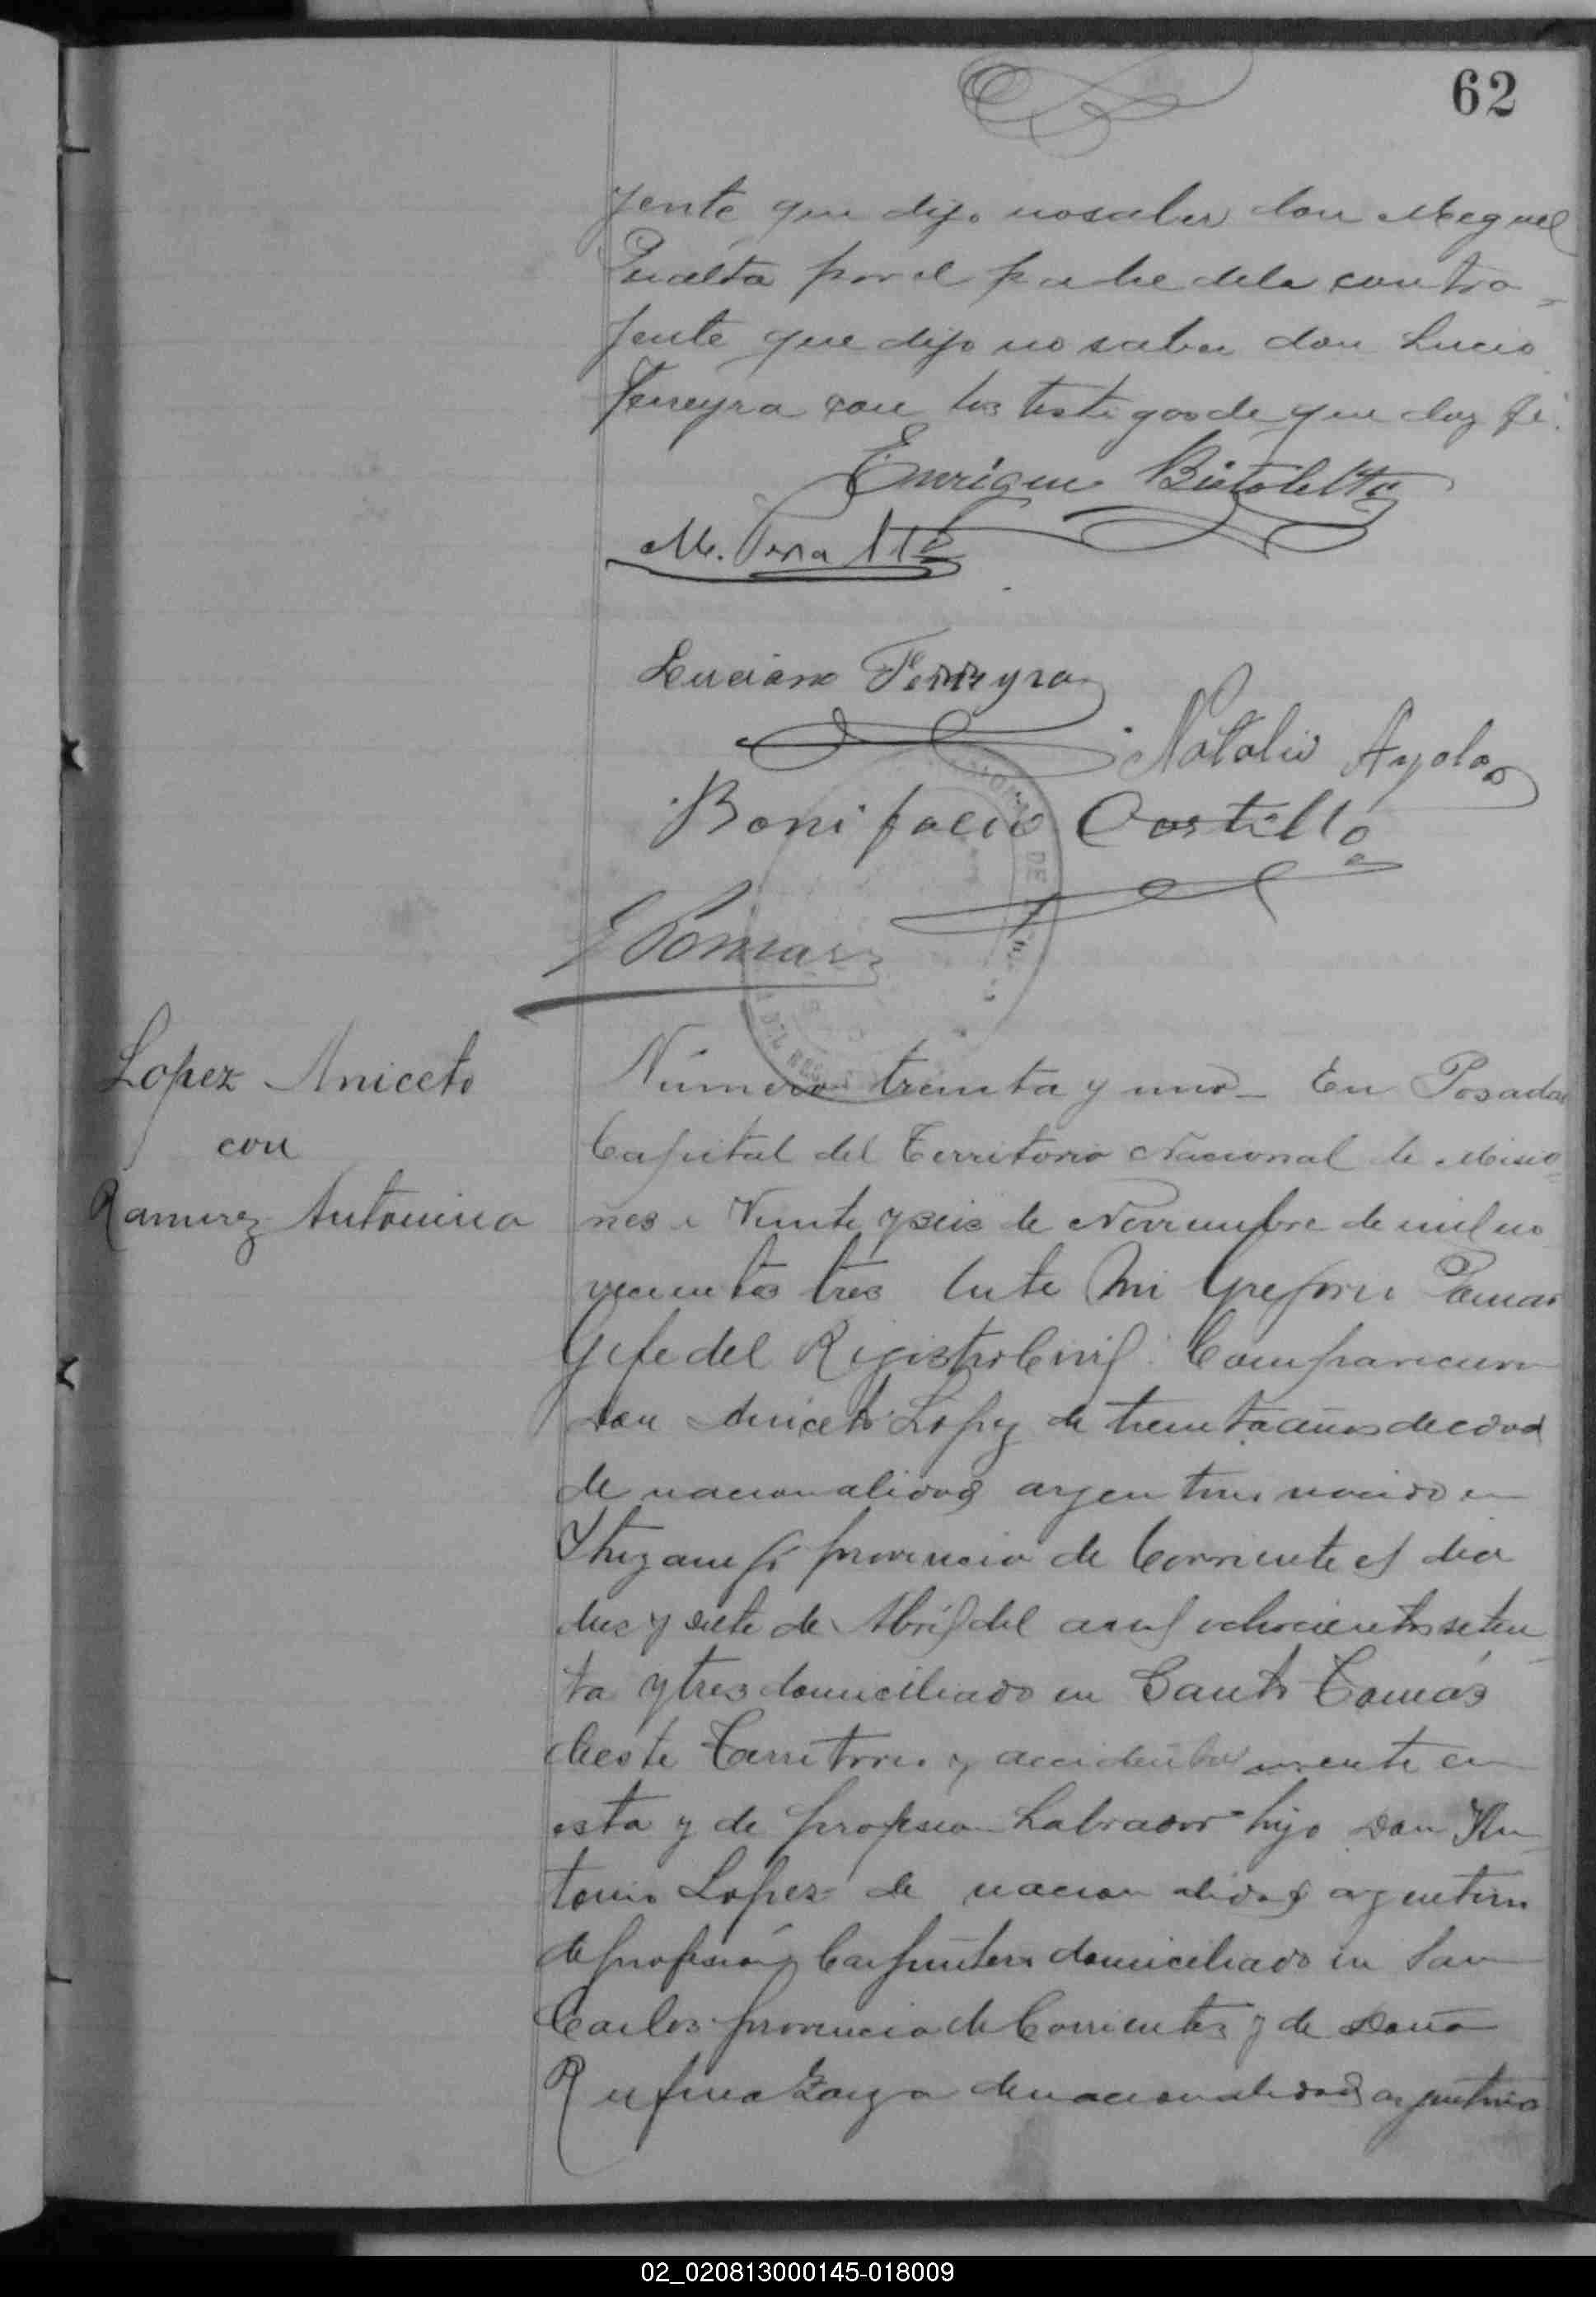 62
yente que dijo no saber don Meguel
Peralta por el padre dela contra-
yente que dijo no saber don Lucio
Ferreyra con los testigos de que doy fé.
Enrique
M. Peralta
Luciano Ferreyra
Natalio Ayala
Bonifacio Castillo
G Pomar
Lopez Aniceto
con
Ramirez Antonina
Número treinta y uno - En Posadas
Capital del Territorio Nacional de Misio-
nes a Veinte y seis de Noviembre de mil no
vecientos tres Ante Mi Gregorio Pomar
Gefe del Registro Civil. Comparecieron
don Aniceto Lopez de treinta años de edad
de nacionalidad argentino nacido en
provincia de Corriente el dia
diez y siete de Abril del ochocientos seten-
ta y tres domiciliado en Santo Tomás
deeste Territorio y accidentalmente en
esta y de profesion Labrador hijo Don An-
tonio Lopez de nacionalidad argentino
de profesión Carpintero domiciliado en San
Carlos provincia de Corrientes y de Doña
Rufina de nacionalidad argentina
02_020813000145-018009